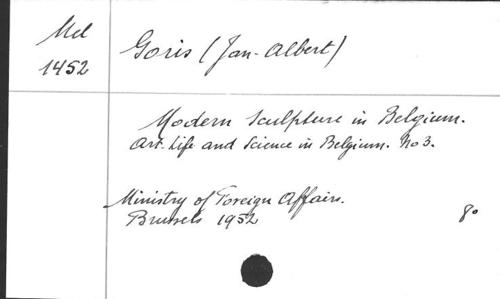 Mel
1452
Goris (Jan-Albert)
Modern Sculpture in Belgium.
Art. Life and Science in Belgium. No 3.
Ministry of Foreign Affairs.
Brussels 1952
8º